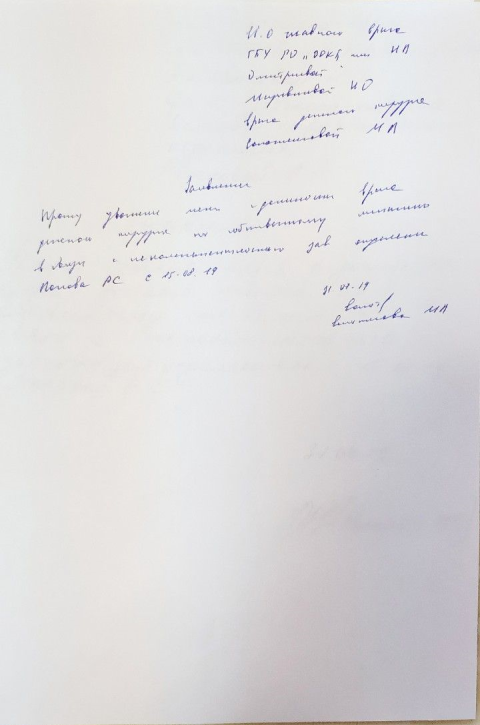 И.О главного врача
ГБУ РО „ОДКБ им НА
Дмитриевой
ИО
врача детского хирурга
МА
Заявление
Прошу уволить меня с должности врача
детского хирурга по собственному желанию
в связи с некомпетентностью зав отделением
Попова РС с 15.08.19
01.08.19
МА